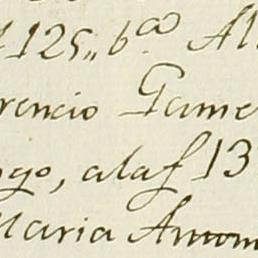 125,, b.co Al
rencio Game
ogo, alaf 13
Maria Anton